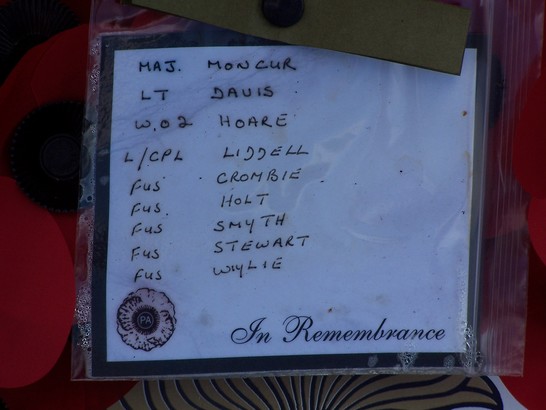 MAJ. MONCUR
LT DAVIS
W.O2 HOARE
L/CPL LIDDELL
FUS CROMBIE
FUS. HOLT
FUS SMYTH
FUS STEWART
FUS WYLIE
PA
In Remembrance